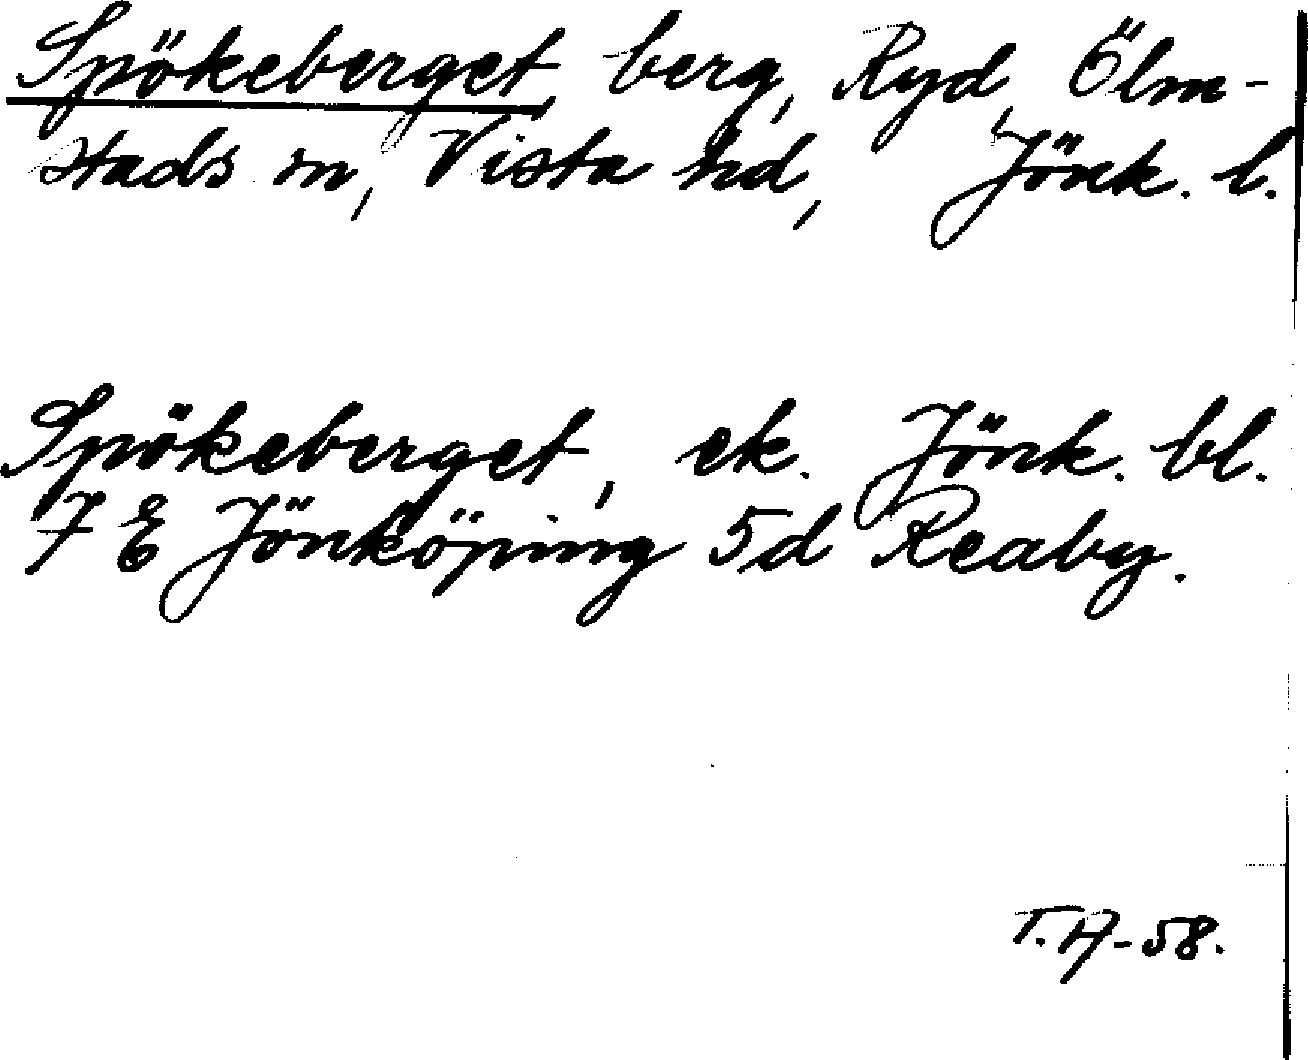 Spökeberget, berg, Ryd, Ölm-
stads sn, Vista hd, Jönk. l.
Spökeberget, ek. Jönk. bl.
7 E Jönköping 5d Reaby.
T.H-58.